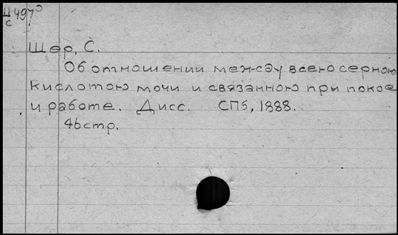 Ш 497
с
Шер, С.
Об отношении между всею серною
кислотою мочи и связанною при покое
и работе. Дисс. СПб, 1888.
46 стр.